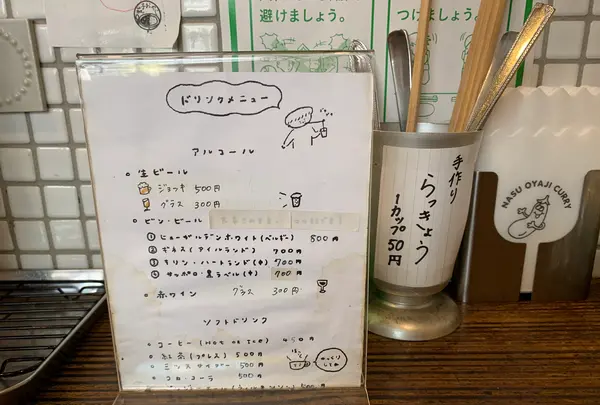 避けましょう。
つけましょう。
ドリンクメニュー
アルコール
生ビール
ジョッキ 500円
グラス 300円
ビン・ビール
① ヒューガルデンホワイト(ベルギー) 800円
② ギネス(アイルランド) 700円
③ キリン・ハートランド(中) 700円
④ サッポロ・黒ラベル(中) 700円
赤ワイン グラス 300円
ソフトドリンク
コーヒー(Hot or Ice) 450円
紅茶(プレス) 500円
500円
コカ・コーラ 500円
500円
ゆっくりしてね
手作り
らっきょう
1カップ50円
NASU OYAJI CURRY